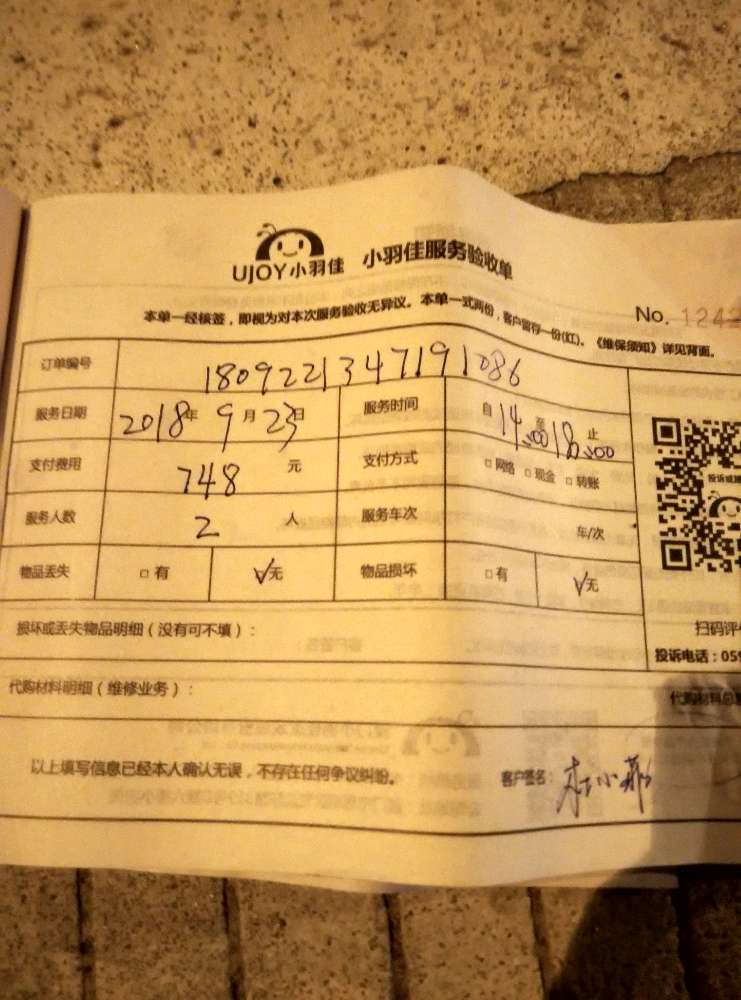 UJOY小羽佳 小羽佳服务验收单
No. 1242
本单一经核签，即视为对本次服务验收无异议。本单一式两份，客户留存一份(红)。《维保须知》详见背面。
订单编号 1809221347191086
服务日期 2018年 9月 23日 服务时间 自14:00至18:00止
支付费用 748 元 支付方式 □网络 □现金 □转账
服务人数 2 人 服务车次 车/次
物品丢失 □有 ☑无 物品损坏 □有 ☑无
投诉或建
损坏或丢失物品明细（没有可不填）：
扫码评价
投诉电话：059
代购材料明细（维修业务）： 代购材料总
以上填写信息已经本人确认无误，不存在任何争议纠纷。 客户签名：